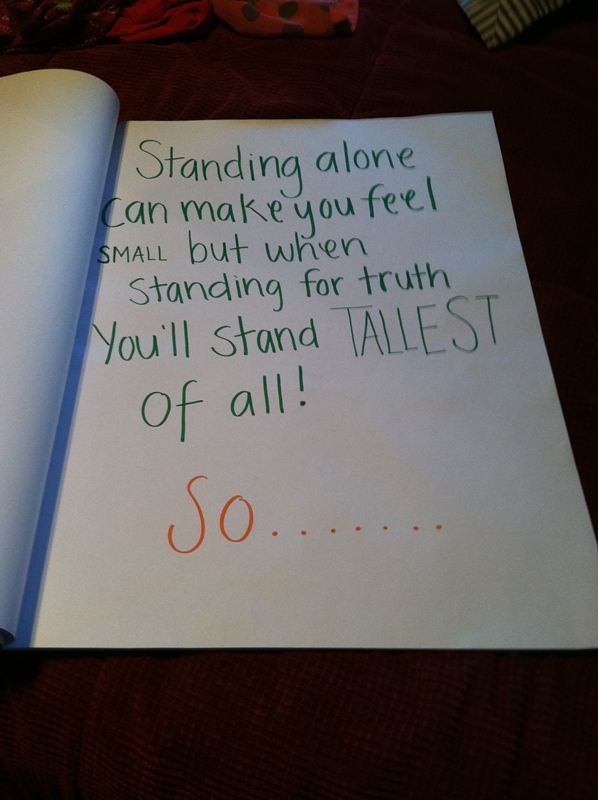 Standing alone
Can make you feel
SMALL but when
Standing for truth
You'll stand TALLEST
Of all!
So.......